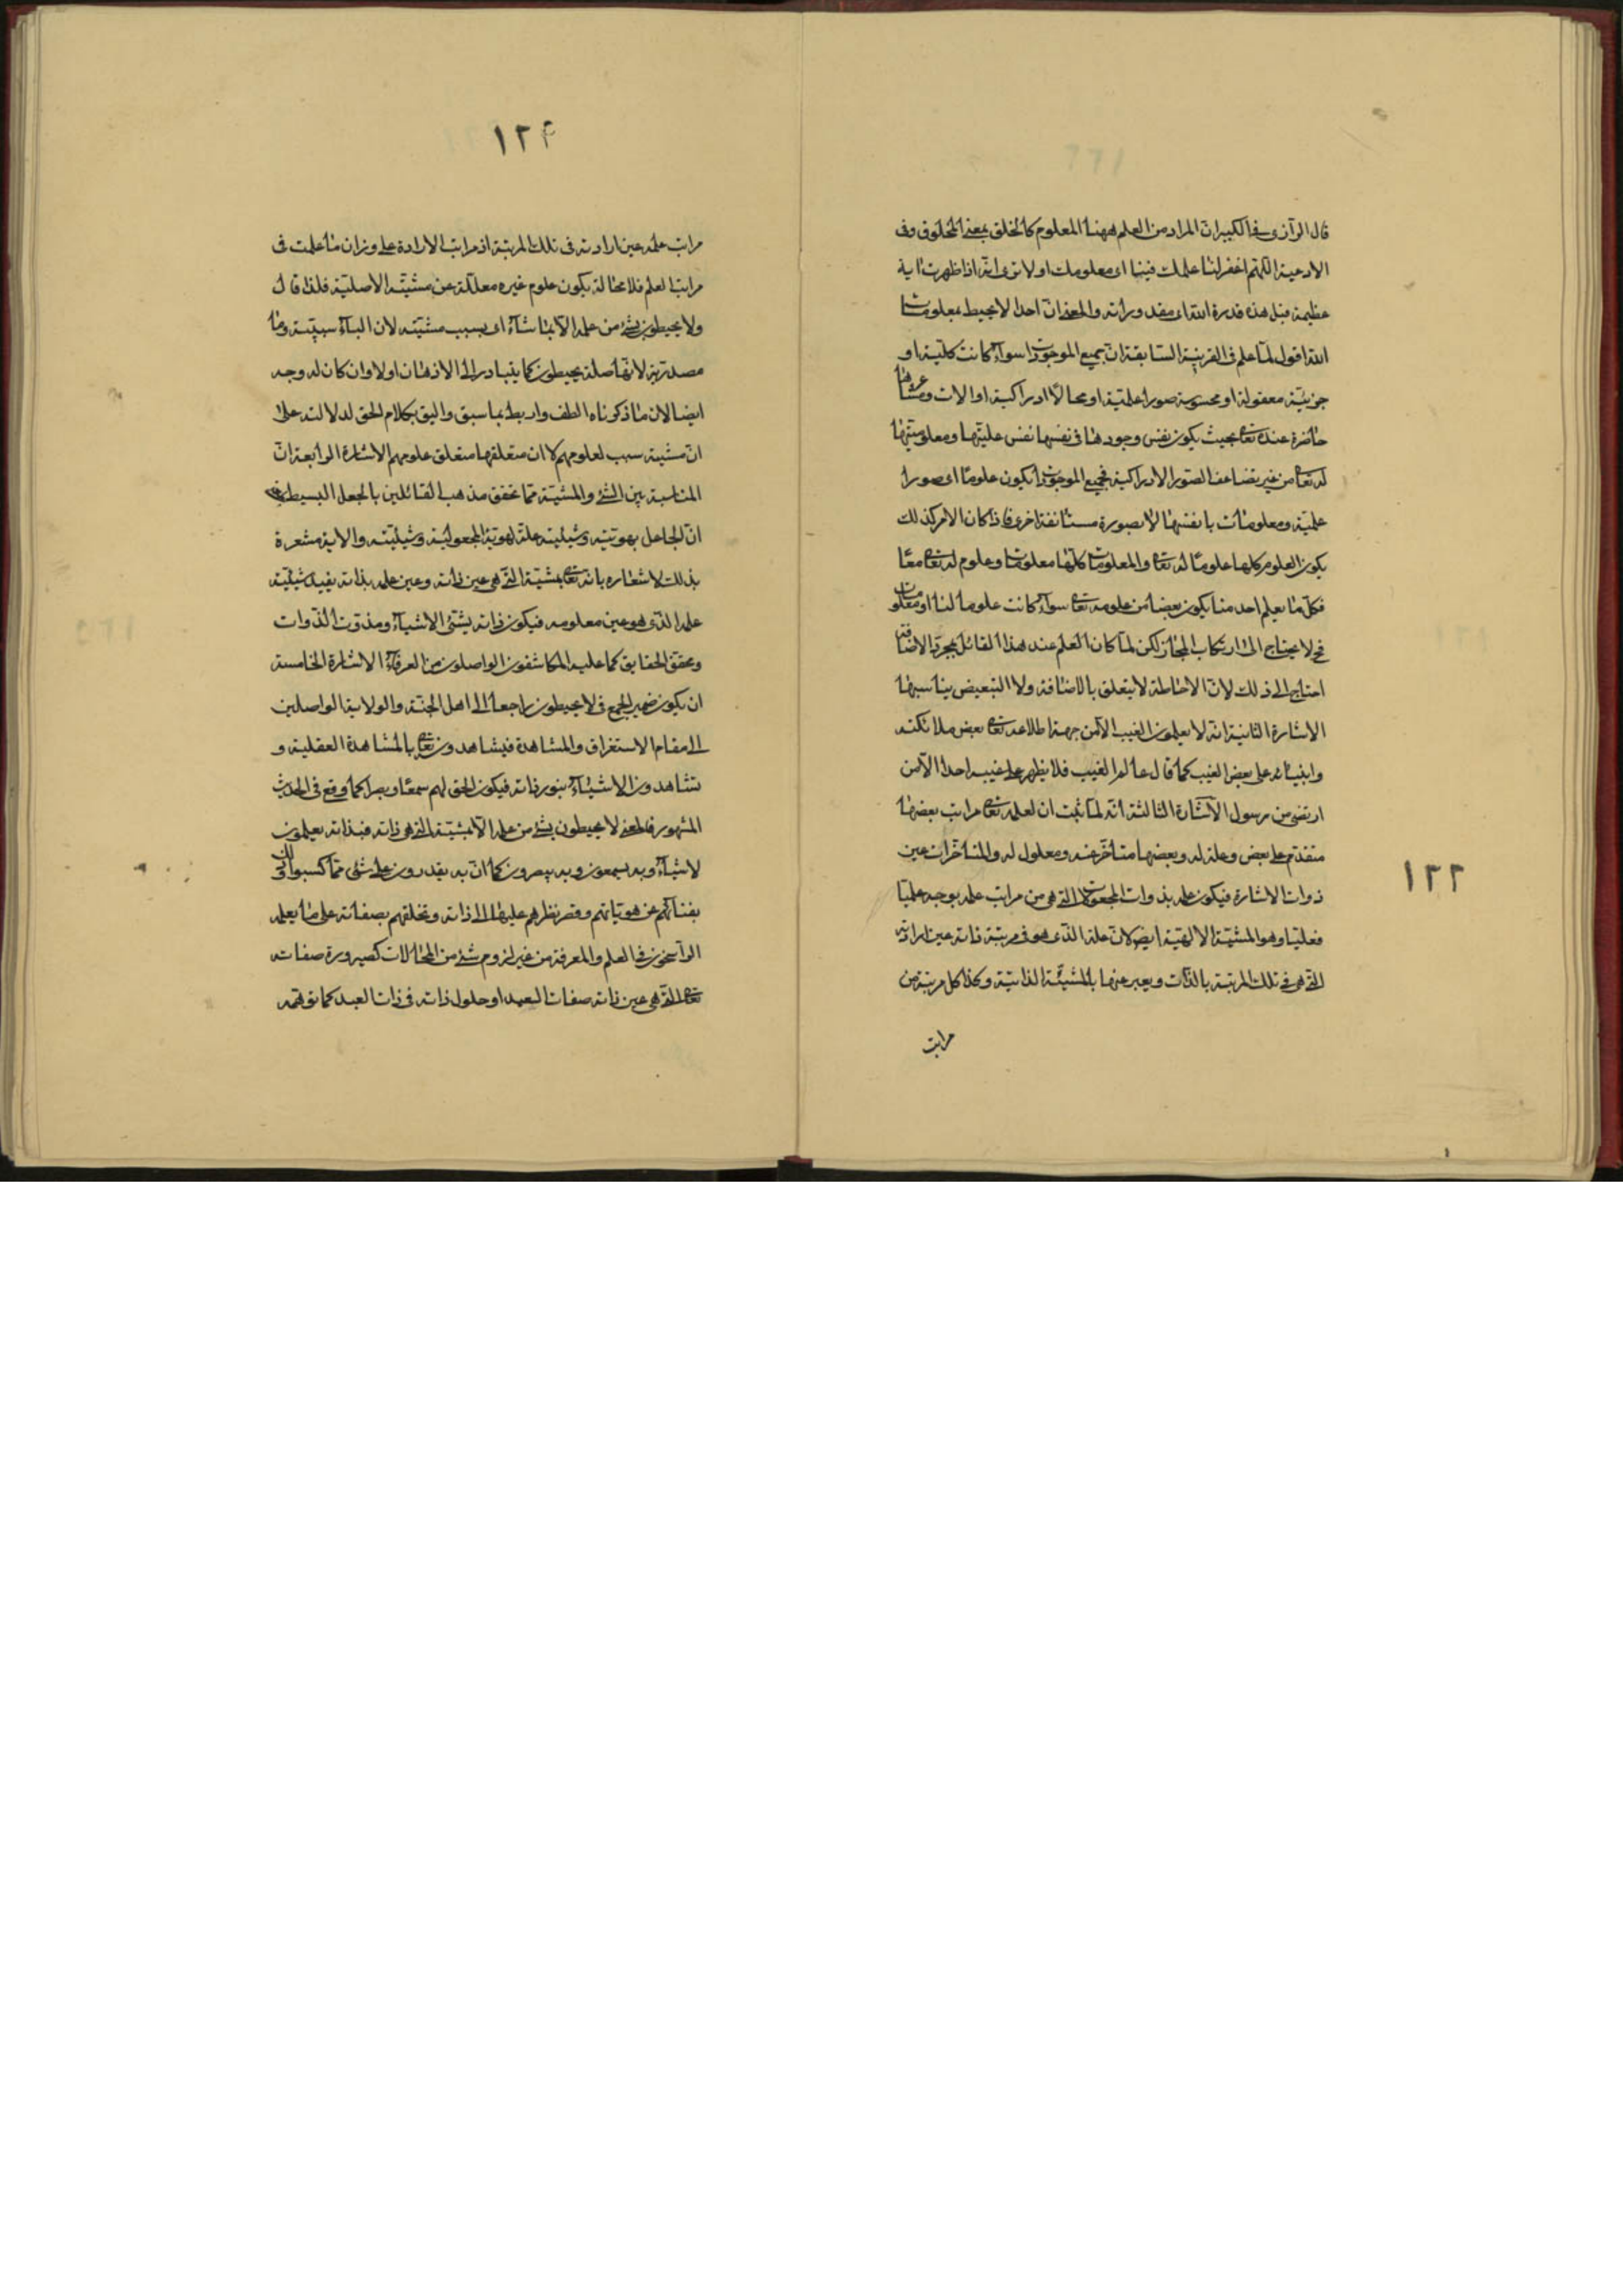 قال الرازى فى الكبير ان المراد من العلم ههنا المعلوم كالخلق بمعنى المخلوق وفى
الادعية اللهم اغفر لنا علمك فينا اى معلومك اولا ترى انه اذا ظهرت اية
عظيمة قيل هذه قدرة الله اى مقدوراته والمعنى ان احدا لا يحيط بمعلومات
الله اقول لما علم فى القرينة السابقة ان جميع الموجودات سواء كانت كلية او
جزئية معقولة او محسوسة صورا علمية او محالا ادراكية او الات ومشاعرها
حاضرة عنده تعالى بحيث يكون نفس وجودها فى نفسها نفس علميتها ومعلوميتها
له تعالى من غير تضاعف الصور الادراكية فجميع الموجودات يكون علوما اى صورا
علمية ومعلومات بانفسها لا بصورة مستانفة اخرى فاذا كان الامر كذلك
يكون العلوم كلها علوما له تعالى والمعلومات كلها معلومات وعلوم له تعالى معا
فكل ما يعلم احد منا يكون بعضا من علومه تعالى سواء كانت علوما لنا او معلومات
فح لا يحتاج الى ارتكاب المجاز لكن لما كان العلم عند هذا القائل مجرد الاضافة
احتاج الى ذلك لان الاحاطة لا يتعلق بالاضافة ولا التبعيض يناسبها
الاشارة الثانية انه لا يعلمون الغيب الا من جهة اطلاعه تعالى بعض ملائكته
وانبيائه على بعض الغيب كما قال عالم الغيب فلا يظهر على غيبه احدا الا من
ارتضى من رسول الاشارة الثالثة انه لما ثبت ان لعلمه تعالى مراتب بعضها
متقدم على بعض وعلة له وبعضها متاخر عنه ومعلول له والمتاخرات عين
ذوات الاشارة فيكون علمه بذوات المجعولات التى هى من مراتب علمه بوجه علميا
فعليا وهو المشية الالهية ايضا لان علمه الذى هو فى مرتبة ذاته عين ارادته
التى هى فى تلك المرتبة بالذات ويعبر عنها بالمشيئة الذاتية وكذا كل مرتبة من
مراتب
١٢٢
١٢٤
مراتب علمه عين ارادته فى تلك المرتبة اذ مراتب الارادة على وزان ما علمت فى
مراتب العلم فلا محالة يكون علوم غيره معللة عن مشيته الاصلية فلذا قال
ولا يحيطون بشئ من علمه الا بما شاء اى بسبب مشيته لان الباء سببية وما
مصدرية لا انها صلة يحيطون كما يتبادر الى الاذهان اولا وان كان له وجه
ايضا الان ما ذكرناه الطف واربط بما سبق واليق بكلام الحق لدلالته على
ان مشيته سبب لعلومهم لا ان متعلقها متعلق علومهم الاشارة الرابعة ان
المناسبة بين الشئ والمشية مما تحقق مذهب القائلين بالجعل البسيط
ان الجاعل بهويته وشيئيته علة لهوية المجعول وشيئيته والاية مشعرة
بذلك لاشعاره بانه تعالى بمشيته التى هى عين ذاته وعين علمه بذاته يفيد شيئية
علمه الذى هو عين معلومه فيكون ذاته يشئ الاشياء ومذوت الذوات
ومحقق الحقايق كما عليه المكاشفون الواصلون من العرفاء الاشارة الخامسة
ان يكون ضمير الجمع فى لا يحيطون راجعا الى اهل الجنة والولاية الواصلين
الى مقام الاستغراق والمشاهدة فيشاهدونه تعالى بالمشاهدة العقلية و
تشاهدون الاشياء بنور ذاته فيكون الحق لهم سمعا وبصرا كما وقع فى الحديث
المشهور فالمعنى لا يحيطون بشئ من علمه الا بمشيته التى هى ذاته فبذاته يعلمون
لاشياء وبه يسمعون وبه يبصرون كما ان به يقدرون على شئ مما كسبوا
بفنائهم عن هوياتهم وقصر نظرهم عليها الى ذاته وتخلقهم بصفاته على ما يعلمه
الراسخون فى العلم والمعرفة من غير لزوم شئ من المحالات كصيرورة صفاته
تعالى التى هى عين ذاته صفات العبد او حلول ذاته فى ذات العبد كما توهمه